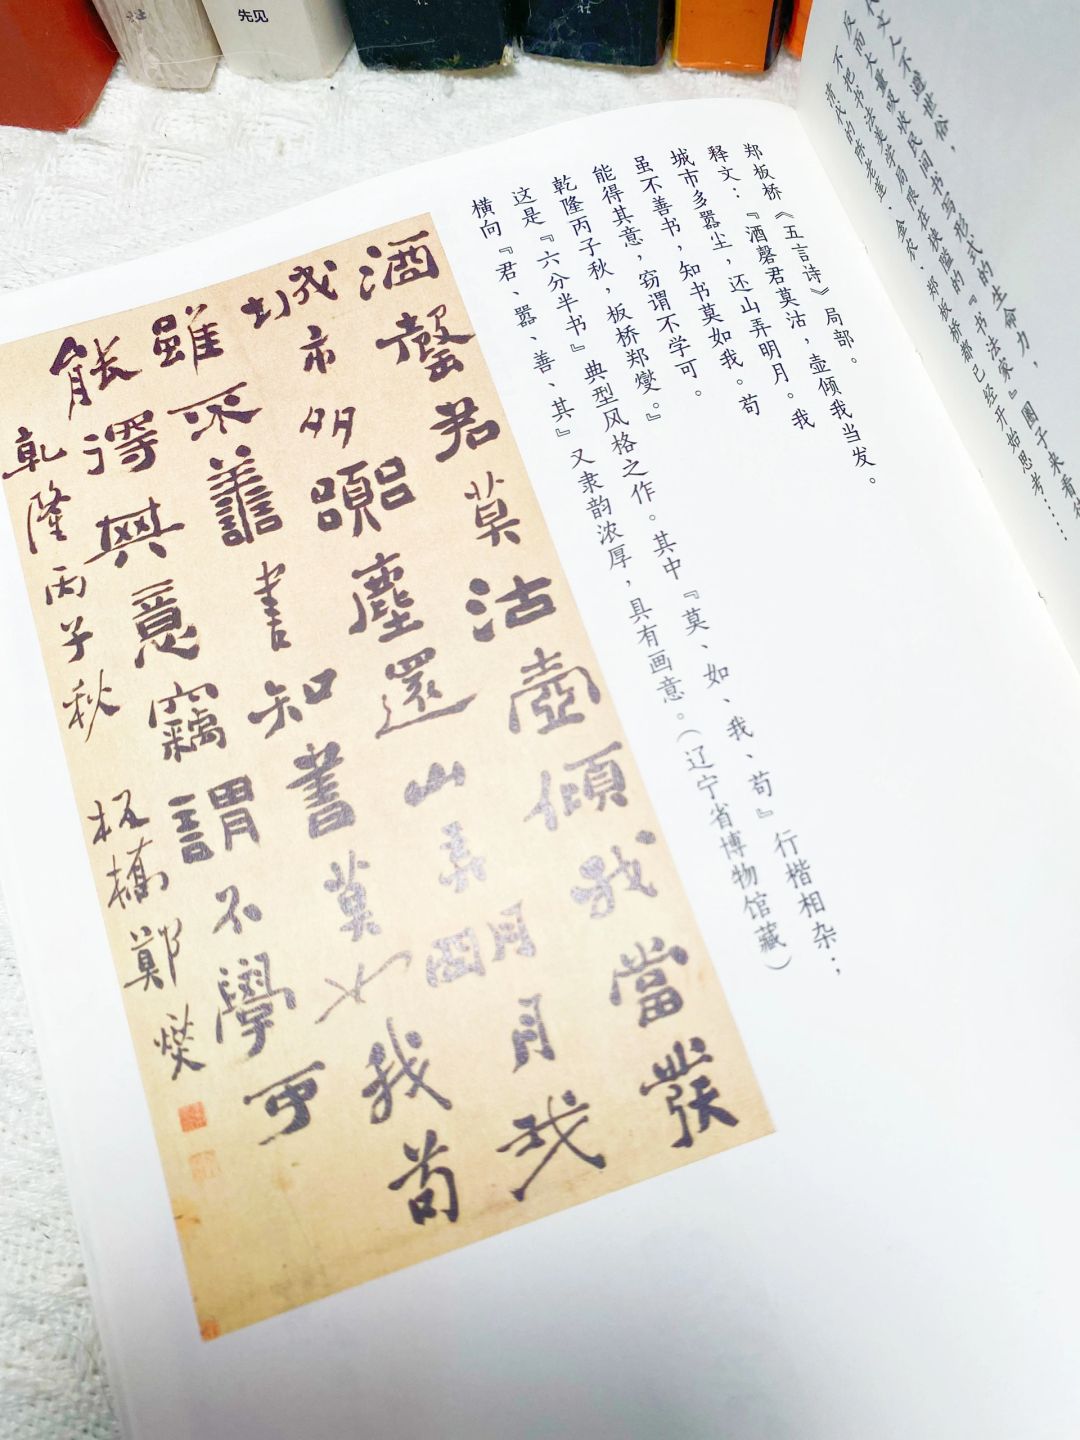 社
先见
文人不避世俗，
反而大量吸收民间书写形式的生命力，
不把书法美学局限在狭隘的『书法家』圈子来看
清代的陈老莲、金农、郑板桥都已经开始思考……
郑板桥《五言诗》局部。
释文：『酒磬君莫沽，壶倾我当发。
城市多嚣尘，还山弄明月。我
虽不善书，知书莫如我。苟
能得其意，窃谓不学可。
乾隆丙子秋，板桥郑燮。』
这是『六分半书』典型风格之作。其中『莫、如、我、苟』行楷相杂；
横向『君、嚣、善、其』又隶韵浓厚，具有画意。（辽宁省博物馆藏）
酒罄君莫沽壺傾我當發
城市多囂塵還山弄明月我
雖不善書知書莫如我苟
能得其意竊謂不學可
乾隆丙子秋 板橋鄭燮